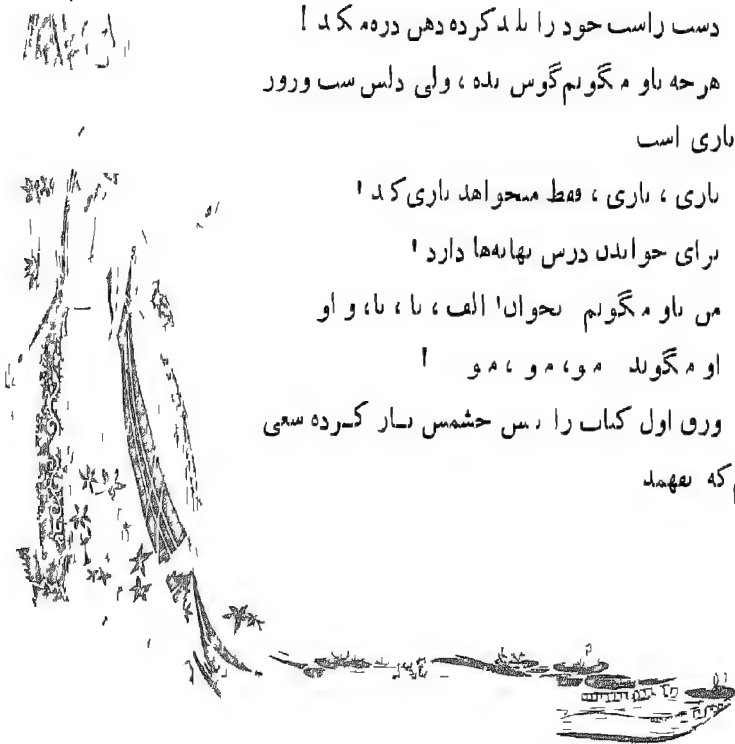 دست راست خود را بلند کرده دهن دره میکند !
هرچه باو میگویم گوش بده ، ولی دلش پیش ورور
بازی است
بازی ، بازی ، فقط میخواهد بازی کند !
برای خواندن درس بهانه‌ها دارد !
من باو میگویم بخوان! الف ، با ، تا، و او
او میگوید مو، مو ، مو !
ورق اول کتاب را پیش چشمش باز کرده سعی
که بفهمد